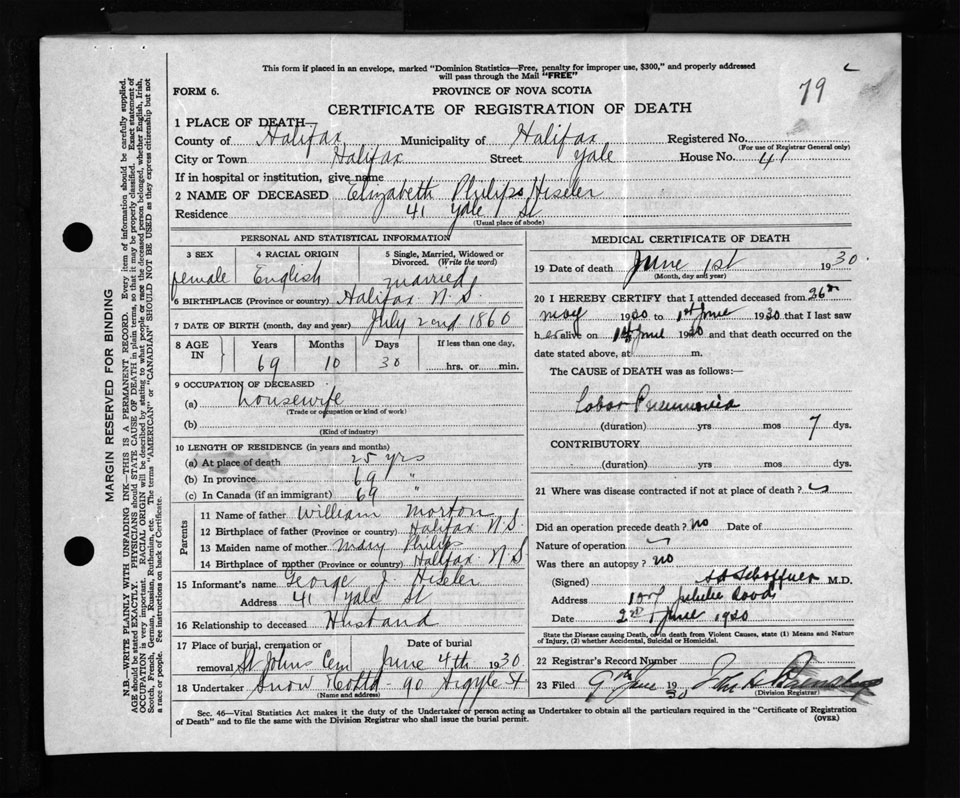 This form if placed in an envelope, marked "Dominion Statistics—Free, penalty for improper use, $300," and properly addressed
will pass through the Mail "FREE"
79
FORM 6.
PROVINCE OF NOVA SCOTIA
CERTIFICATE OF REGISTRATION OF DEATH
1 PLACE OF DEATH—
County of Halifax Municipality of Halifax Registered No.
(For use of Registrar General only)
City or Town Halifax Street Yale House No. 41
If in hospital or institution, give name
2 NAME OF DECEASED Elizabeth Philips Hiseler
Residence 41 Yale St
(Usual place of abode)
PERSONAL AND STATISTICAL INFORMATION
3 SEX 4 RACIAL ORIGIN 5 Single, Married, Widowed or Divorced. (Write the word)
female English married
6 BIRTHPLACE (Province or country) Halifax N.S.
7 DATE OF BIRTH (month, day and year) July 2nd 1860
8 AGE IN Years Months Days If less than one day,
69 10 30 hrs. or min.
9 OCCUPATION OF DECEASED
(a) housewife
(Trade or occupation or kind of work)
(b)
(Kind of industry)
10 LENGTH OF RESIDENCE (in years and months)
(a) At place of death 25 yrs
(b) In province 69 "
(c) In Canada (if an immigrant) 69 "
Parents
11 Name of father William Morton
12 Birthplace of father (Province or country) Halifax N.S.
13 Maiden name of mother Mary Philips
14 Birthplace of mother (Province or country) Halifax N S
15 Informant's name George J. Hiseler
Address 41 Yale St
16 Relationship to deceased Husband
17 Place of burial, cremation or removal St Johns Cem Date of burial June 4th 1930
18 Undertaker Snow & Co Ltd 90 Argyle St
(Name and address)
MEDICAL CERTIFICATE OF DEATH
19 Date of death June 1st 1930
(Month, day and year)
20 I HEREBY CERTIFY that I attended deceased from 26th
May 1930 to 1st June 1930 that I last saw
her alive on 1st June 1930 and that death occurred on
date stated above, at m.
The CAUSE of DEATH was as follows:—
Lobar Pneumonia
(duration) yrs mos 7 dys.
CONTRIBUTORY
(duration) yrs mos dys.
21 Where was disease contracted if not at place of death?
Did an operation precede death? no Date of
Nature of operation
Was there an autopsy? no
(Signed) Schaffner M.D.
Address 107 Jubilee Road
Date 2nd June 1930
State the Disease causing Death, or in death from Violent Causes, state (1) Means and Nature
of Injury, (2) whether Accidental, Suicidal or Homicidal.
22 Registrar's Record Number
23 Filed 9th June 1930 John
(Division Registrar)
Sec. 46—Vital Statistics Act makes it the duty of the Undertaker or person acting as Undertaker to obtain all the particulars required in the "Certificate of Registration
of Death" and to file the same with the Division Registrar who shall issue the burial permit.
(OVER)
MARGIN RESERVED FOR BINDING
N.B.—WRITE PLAINLY WITH UNFADING INK—THIS IS A PERMANENT RECORD. Every item of information should be carefully supplied.
AGE should be stated EXACTLY. PHYSICIANS should STATE CAUSE OF DEATH in plain terms, so that it may be properly classified. Exact statement of
OCCUPATION is very important. RACIAL ORIGIN will be described by stating to what people or race the deceased person belonged, whether English, Irish,
Scotch, French, German, Russian, Ruthenian, etc. The terms "AMERICAN" or "CANADIAN" SHOULD NOT BE USED as they express citizenship but not
a race or people. See instructions on back of Certificate.